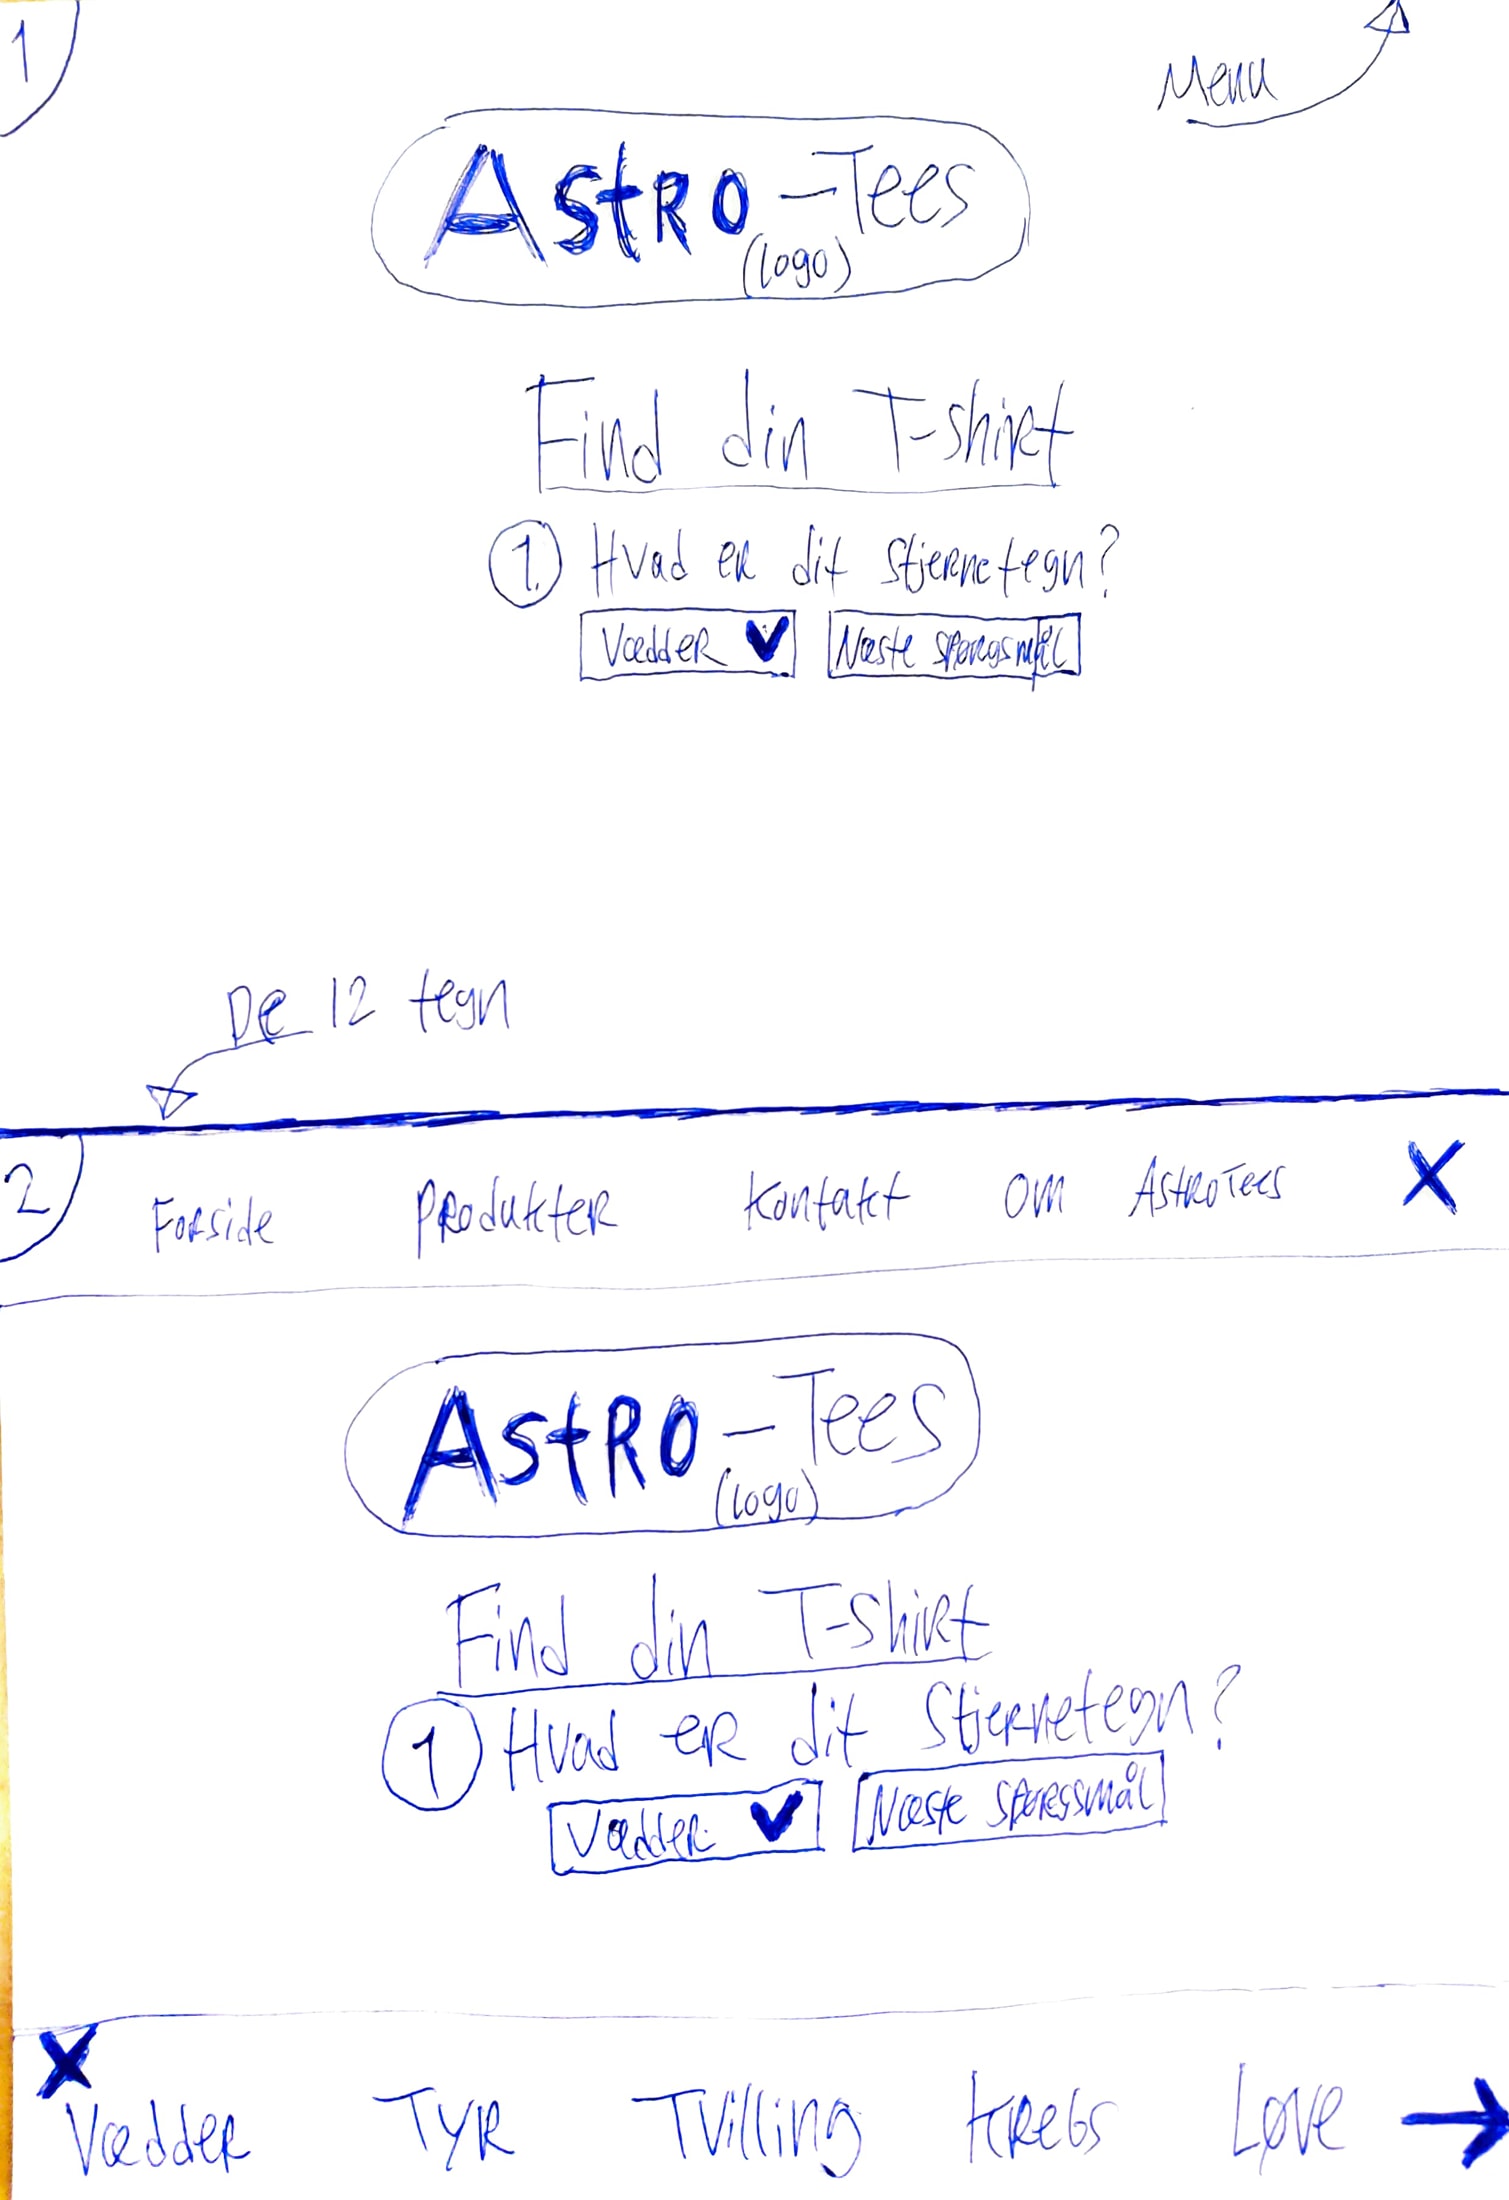 1
Menu
Astro-Tees
(logo)
Find din T-shirt
1. Hvad er dit stjernetegn?
Vædder Næste spørgsmål
De 12 tegn
2 Forside Produkter Kontakt Om AstroTees X
Astro-Tees
(logo)
Find din T-shirt
1 Hvad er dit Stjernetegn?
Vædder Næste spørgsmål
X
Vædder Tyr Tvilling Krebs Løve →